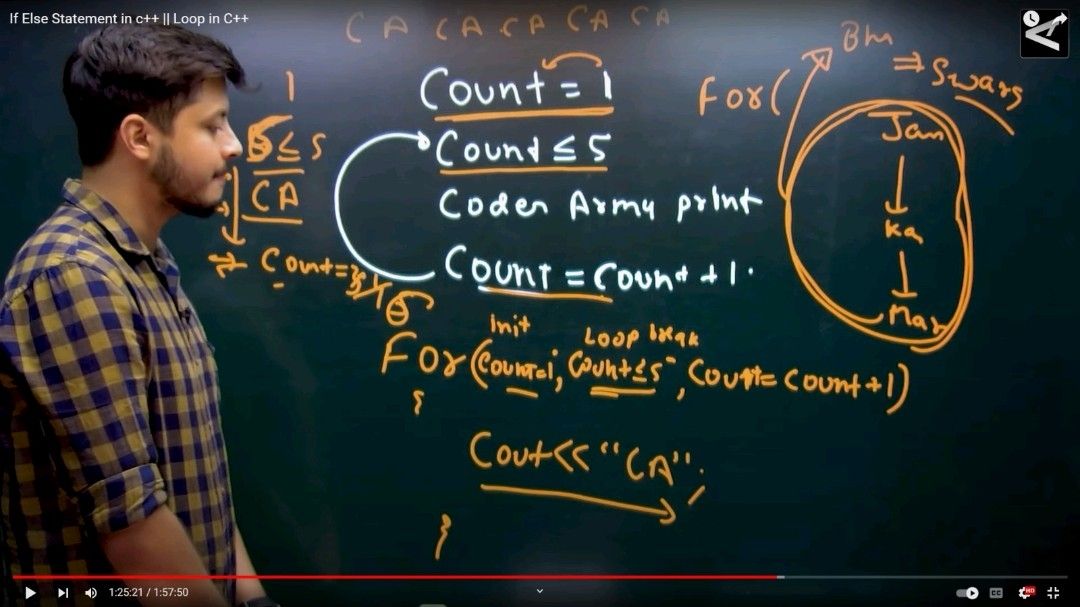 If Else Statement in c++ || Loop in C++
CA CA CA CA CA
Count = 1
Count ≤ 5
Coder Army print
Count = Count + 1.
1
≤ 5
CA
Count =
6
For(
⇒ Swarg
Jan
Ka
Mar
Init
Loop break
For(Count=1, Count≤5, Count=Count+1)
{
Cout<< "CA";
}
1:25:21 / 1:57:50
CC
HD